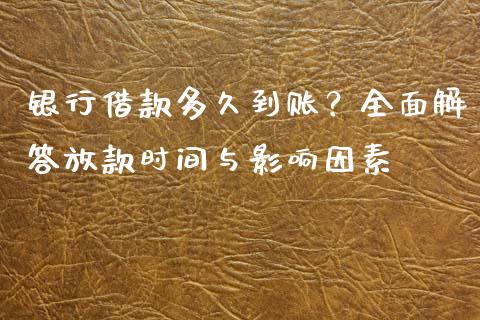 银行借款多久到账？全面解
答放款时间与影响因素